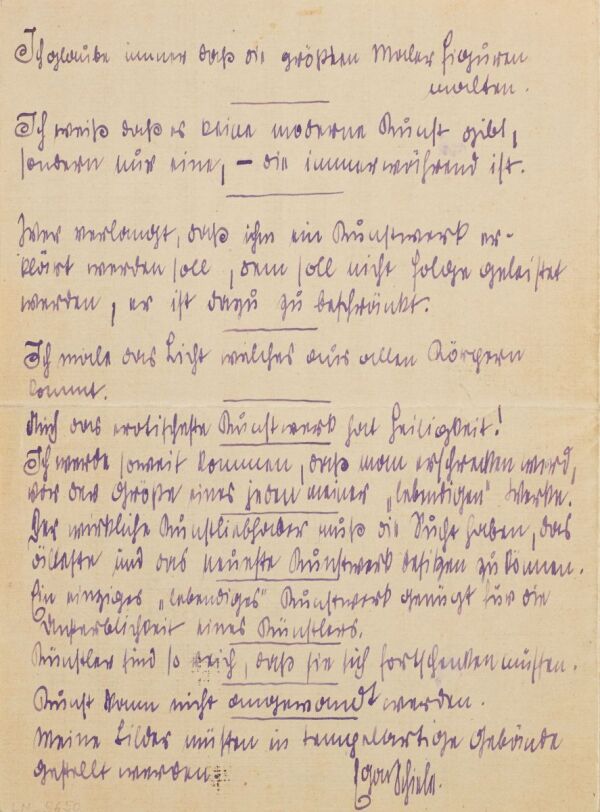 Ich glaube immer daß die größten Maler Figuren
malten.
Ich weiß daß es keine moderne Kunst gibt,
sondern nur eine, – die immerwährend ist.
Wer verlangt, daß ihm ein Kunstwerk er-
klärt werden soll, dem soll nicht folge geleistet
werden, er ist dazu zu beschränkt.
Ich male das Licht welches aus allen Körpern
kommt.
Auch das erotischeste Kunstwerk hat Heiligkeit!
Ich werde soweit kommen, daß man erschrecken wird,
vor der Größe eines jeden meiner „lebendigen" Werke.
Der wirkliche Kunstliebhaber muß die Sucht haben, das
älteste und das neueste Kunstwerk besitzen zu können.
Ein einziges „lebendiges" Kunstwerk genügt für die
Unsterblichkeit eines Künstlers.
Künstler sind so reich, daß sie sich fortschenken müssen.
Kunst kann nicht angewandt werden.
Meine Bilder müssen in tempelartige Gebäude
gestellt werden.
Egon Schiele.